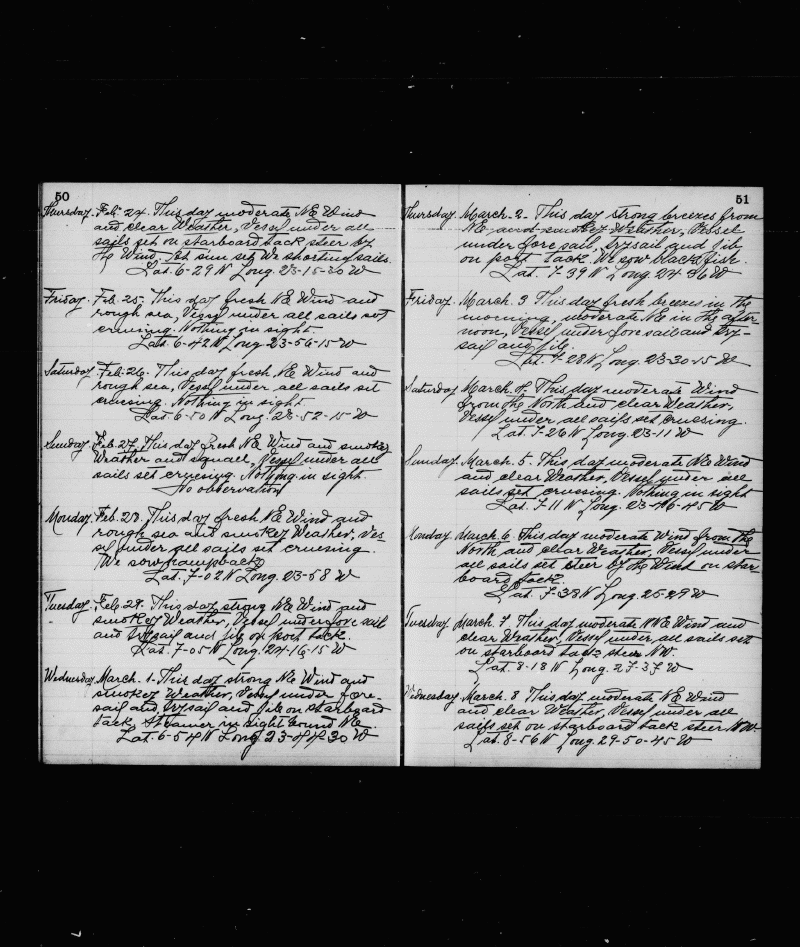 50
Thursday. Feb. 24. This day moderate NE Wind
and clear Weather, Vessel under all
sails set on starboard tack steer by
the Wind. At sun set We shorting sails.
Lat. 6-29 N Long. 23-15-30 W
Friday. Feb. 25. This day fresh NE Wind and
rough sea, Vessel under all sails set
cruving. Nothing in sight.
Lat. 6-42 N Long. 23-56-15 W
Saturday. Feb. 26. This day fresh NE Wind and
rough sea, Vessel under all sails set
crueing. Nothing in sight.
Lat. 6-50 N Long. 23-52-15 W
Sunday. Feb. 27. This day fresh NE Wind and smokey
Weather and squall, Vessel under all
sails set cruesing. Nothing in sight.
No observation
Monday. Feb. 28. This day fresh NE Wind and
rough sea and smokey Weather, Ves-
sel under all sails set cruesing.
We sow humpback
Lat. 7-02 N Long. 23-58 W
Tuesday. Feb. 29. This day strong NE Wind and
smokey Weather, Vessel under fore sail
and trysail and jib on port tack.
Lat. 7-05 N Long. 24-16-15 W
Wednesday. March. 1. This day strong NE Wind and
smokey Weather, Vessel under fore-
sail and trysail and jib on starboard
tack. Steamer in sight bound NE
Lat. 6-54 N Long 23-44-30 W
51
Thursday. March. 2. This day strong breezes from
NE and smokey Weather, Vessel
under fore sail, trysail and jib
on port tack. We sow blackfish.
Lat. 7-39 N Long. 24-36 W
Friday. March. 3 This day fresh breezes in the
morning, moderate NE in the after-
noon, Vessel under fore sail and try-
sail and jib.
Lat. 7-28 N Long. 23-30-15 W
Saturday March. 4. This day moderate Wind
from the North and clear Weather,
Vessel under all sails set cruesing.
Lat. 7-26 N Long. 23-11 W
Sunday. March. 5. This day moderate NE Wind
and clear Weather, Vessel under all
sails set cruesing. Nothing in sight
Lat. 7-11 N Long. 23-46-45 W
Monday March. 6. This day moderate Wind from the
North and clear Weather, Vessel under
all sails set steer by the Wind on star
board tack.
Lat. 7-38 N Long. 25-29 W
Tuesday March. 7 This day moderate NE Wind and
clear Weather, Vessel under all sails set
on starboard tack steer NW.
Lat. 8-18 N Long. 27-37 W
Wednesday. March. 8 This day moderate NE Wind
and clear Weather, Vessel under all
sails set on starboard tack steer NW.
Lat. 8-56 N Long. 29-50-45 W